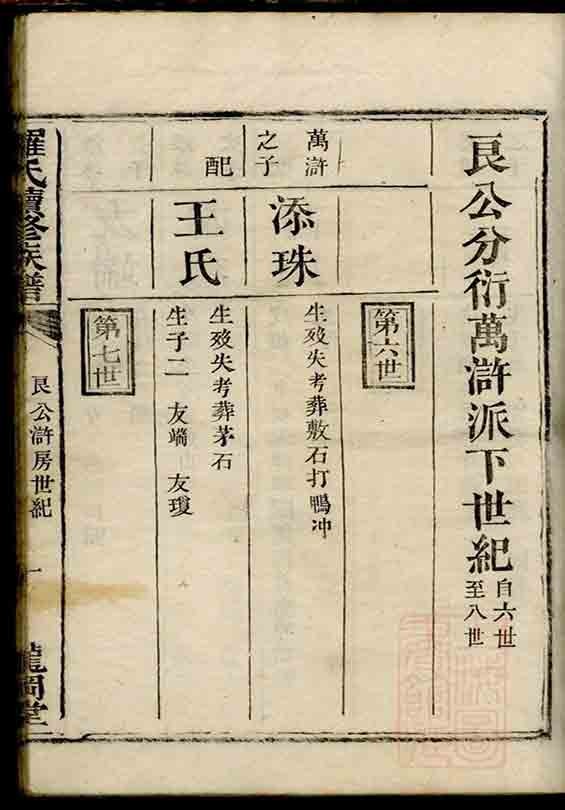 良公分衍萬滸派下世紀 自六世至八世
第六世
萬滸之子
添珠
生歿失考葬敷石打鴨冲
配
王氏
生歿失考葬茅石
生子二 友端 友瓊
第七世
羅氏續修族譜
良公滸房世紀
一